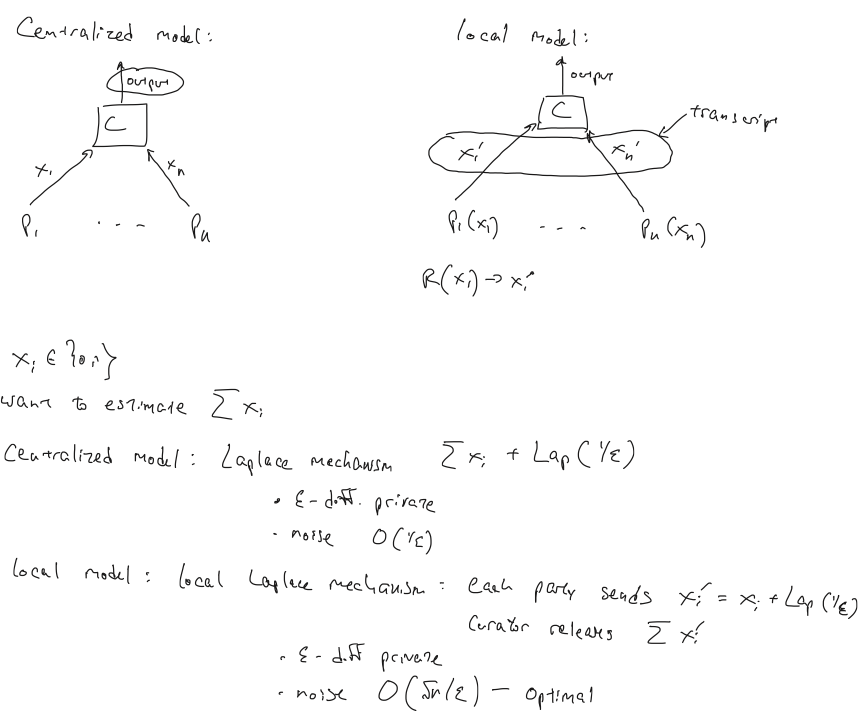 Centralized model:
output
C
x₁ xₙ
P₁ ... Pₙ
local model:
output
C
transcript
x₁' xₙ'
P₁(x₁) ... Pₙ(xₙ)
R(xᵢ) → xᵢ'
xᵢ ∈ {0,1}
want to estimate ∑ xᵢ
Centralized model: Laplace mechanism ∑ xᵢ + Lap(1/ε)
• ε-diff. private
• noise O(1/ε)
local model: local Laplace mechanism: each party sends xᵢ' = xᵢ + Lap(1/ε)
Curator releases ∑ xᵢ'
• ε-diff private
• noise O(√n/ε) - optimal